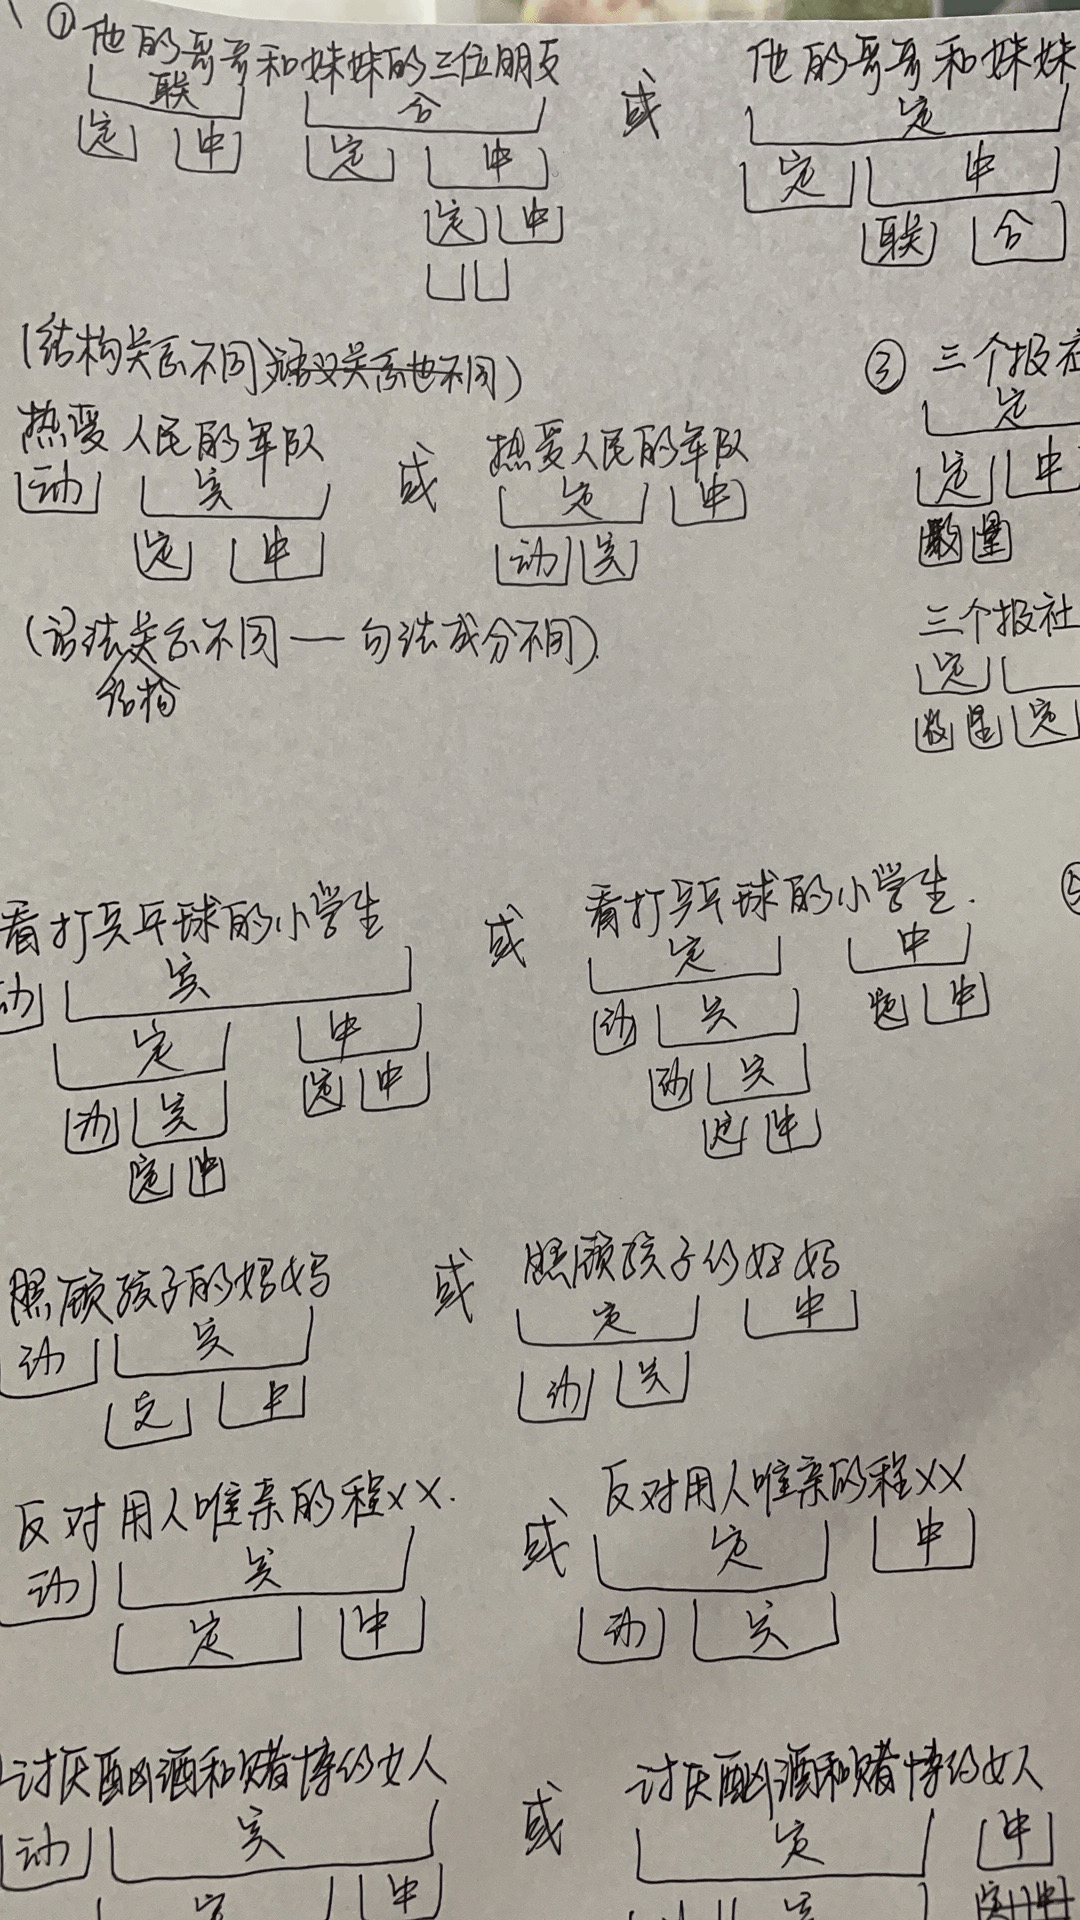 ① 他的哥哥和妹妹的三位朋友 或 他的哥哥和妹妹
联 合 定
定 中 定 中 定 中
定 中 联 合
(结构关系不同,语义关系也不同)
③ 三个报社
热爱人民的军队 或 热爱人民的军队
定
动 宾 定 中
定 中
定 中 动 宾
数 量
(语法关系不同——句法成分不同).
结构
三个报社
定
数 量 定
看打乒乓球的小学生 或 看打乒乓球的小学生.
动 宾 定 中
定 中 动 宾 定 中
动 宾 定 中 动 宾
定 中 定 中
照顾孩子的妈妈 或 照顾孩子的妈妈
动 宾 定 中
定 中 动 宾
反对用人唯亲的程XX. 或 反对用人唯亲的程XX
动 宾 定 中
定 中 动 宾
讨厌酗酒和赌博的女人 或 讨厌酗酒和赌博的女人
动 宾 定 中
定 中 宾 定 中